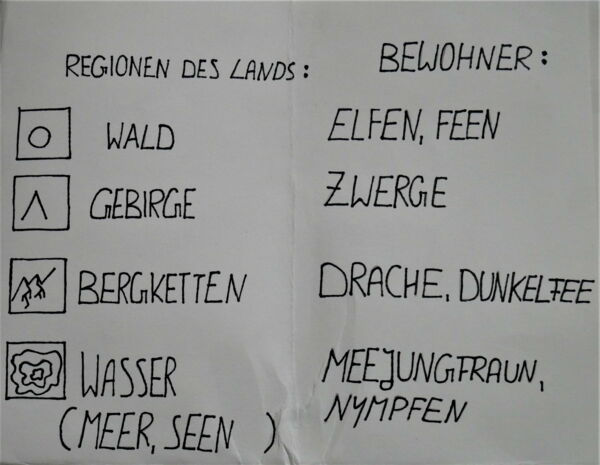 REGIONEN DES LANDS: BEWOHNER:
WALD ELFEN, FEEN
GEBIRGE ZWERGE
BERGKETTEN DRACHE, DUNKELFEE
WASSER MEEJUNGFRAUN,
(MEER, SEEN ) NYMPFEN